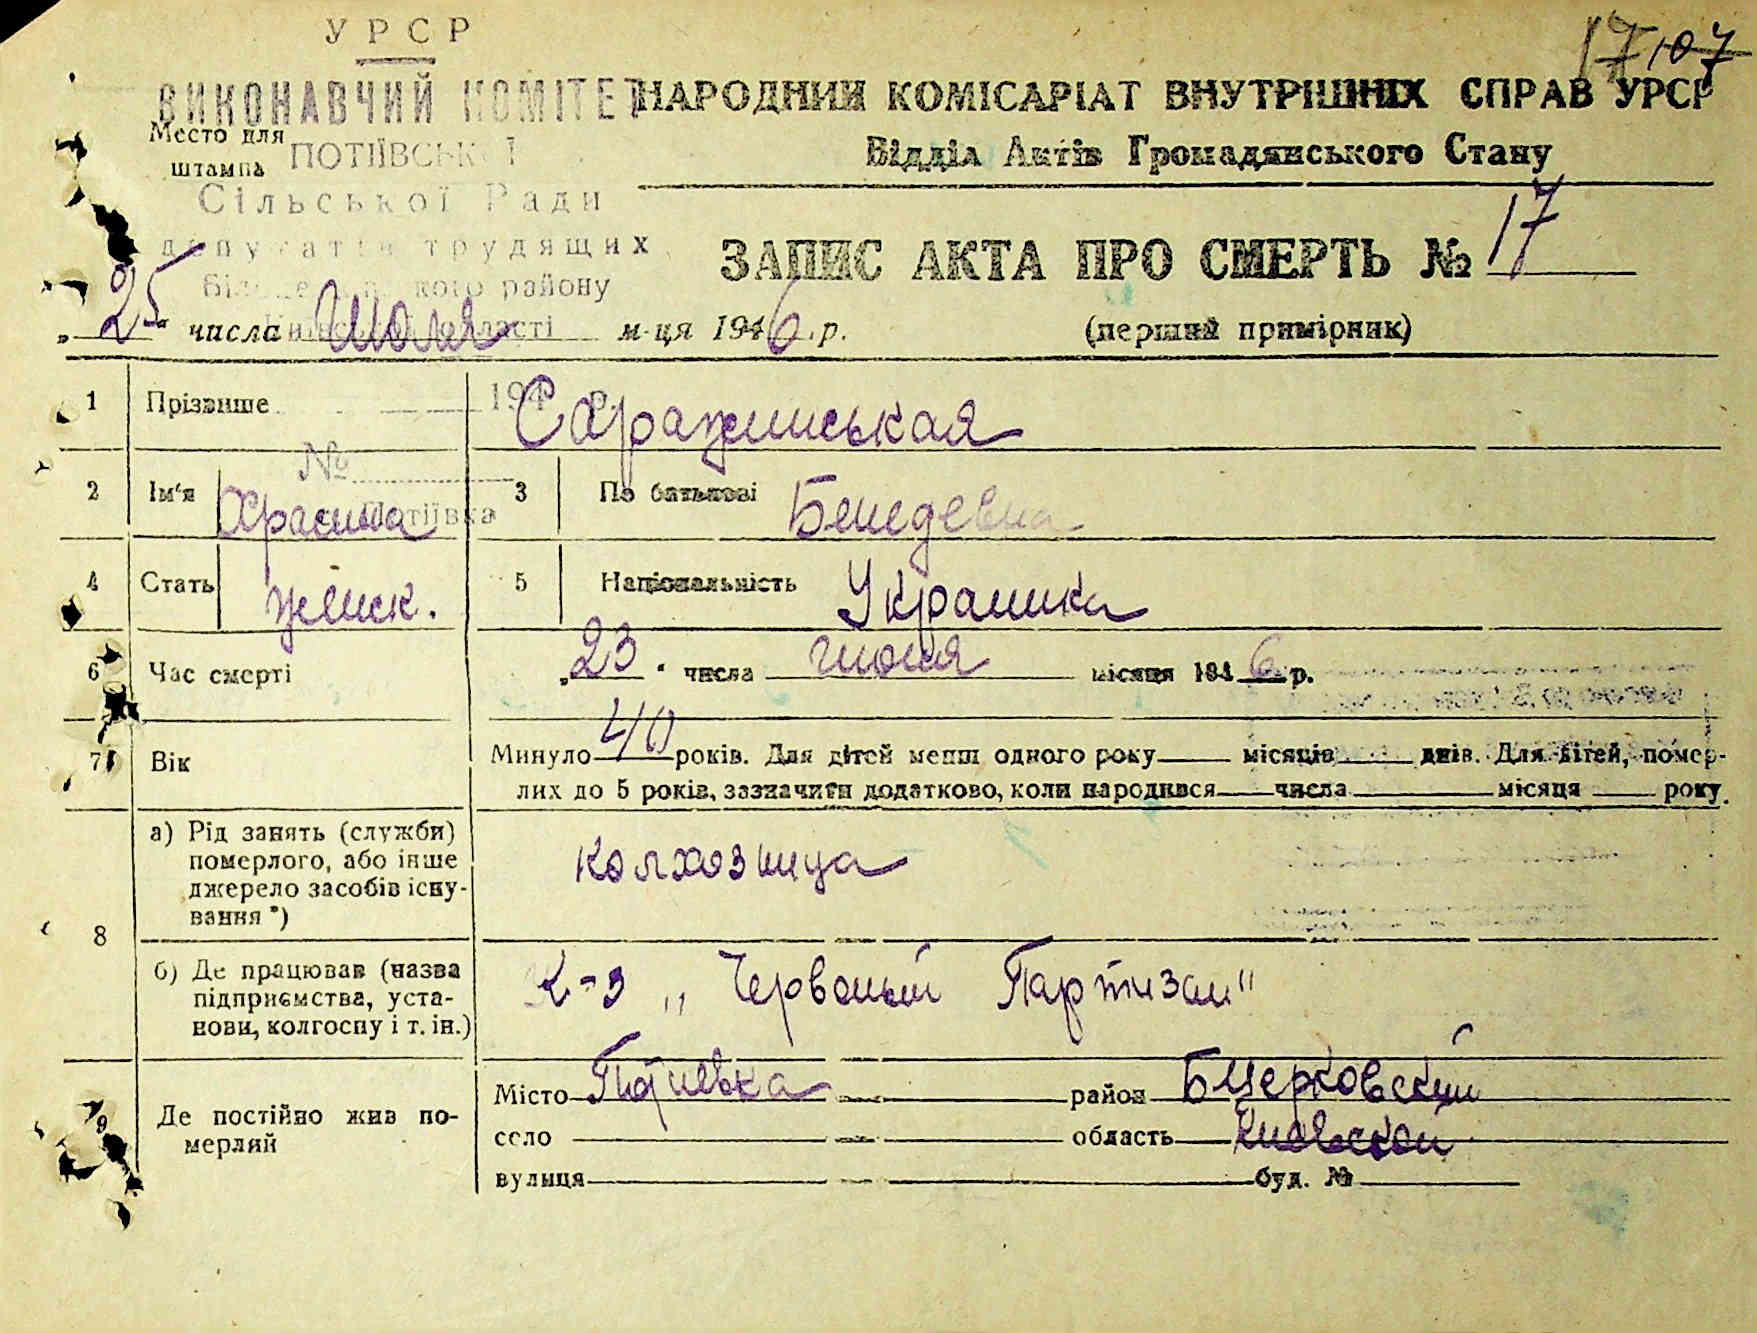 УРСР
17,07
ВИКОНАВЧИЙ КОМІТЕТ
НАРОДНИЙ КОМІСАРІАТ ВНУТРІШНІХ СПРАВ УРСР
Место для штампа
ПОТІЇВСЬКОЇ
Відділ Актів Громадянського Стану
Сільської Ради
депутатів трудящих
ЗАПИС АКТА ПРО СМЕРТЬ № 17
кого району
Київської області
„25“ числа Июля м-ця 1946 р.
(перший примірник)
194 р.
1 Прізвище Саражинськая
№
2 Ім'я 3 По батькові
Потіївка
4 Стать женск. 5 Національність Украинка
6 Час смерті „23“ числа июля місяця 1946 р.
7 Вік Минуло 40 років. Для дітей менш одного року місяців днів. Для дітей, помер-
лих до 5 років, зазначити додатково, коли народився числа місяця року.
8 а) Рід занять (служби)
померлого, або інше
джерело засобів існу-
вання *)
колхозница
б) Де працював (назва
підприємства, уста-
нови, колгоспу і т. ін.)
К-з „Червоный Партизан"
9 Де постійно жив по-
мерлий
Місто Потиевка район Бцерковский
село область Киевской
вулиця буд. №